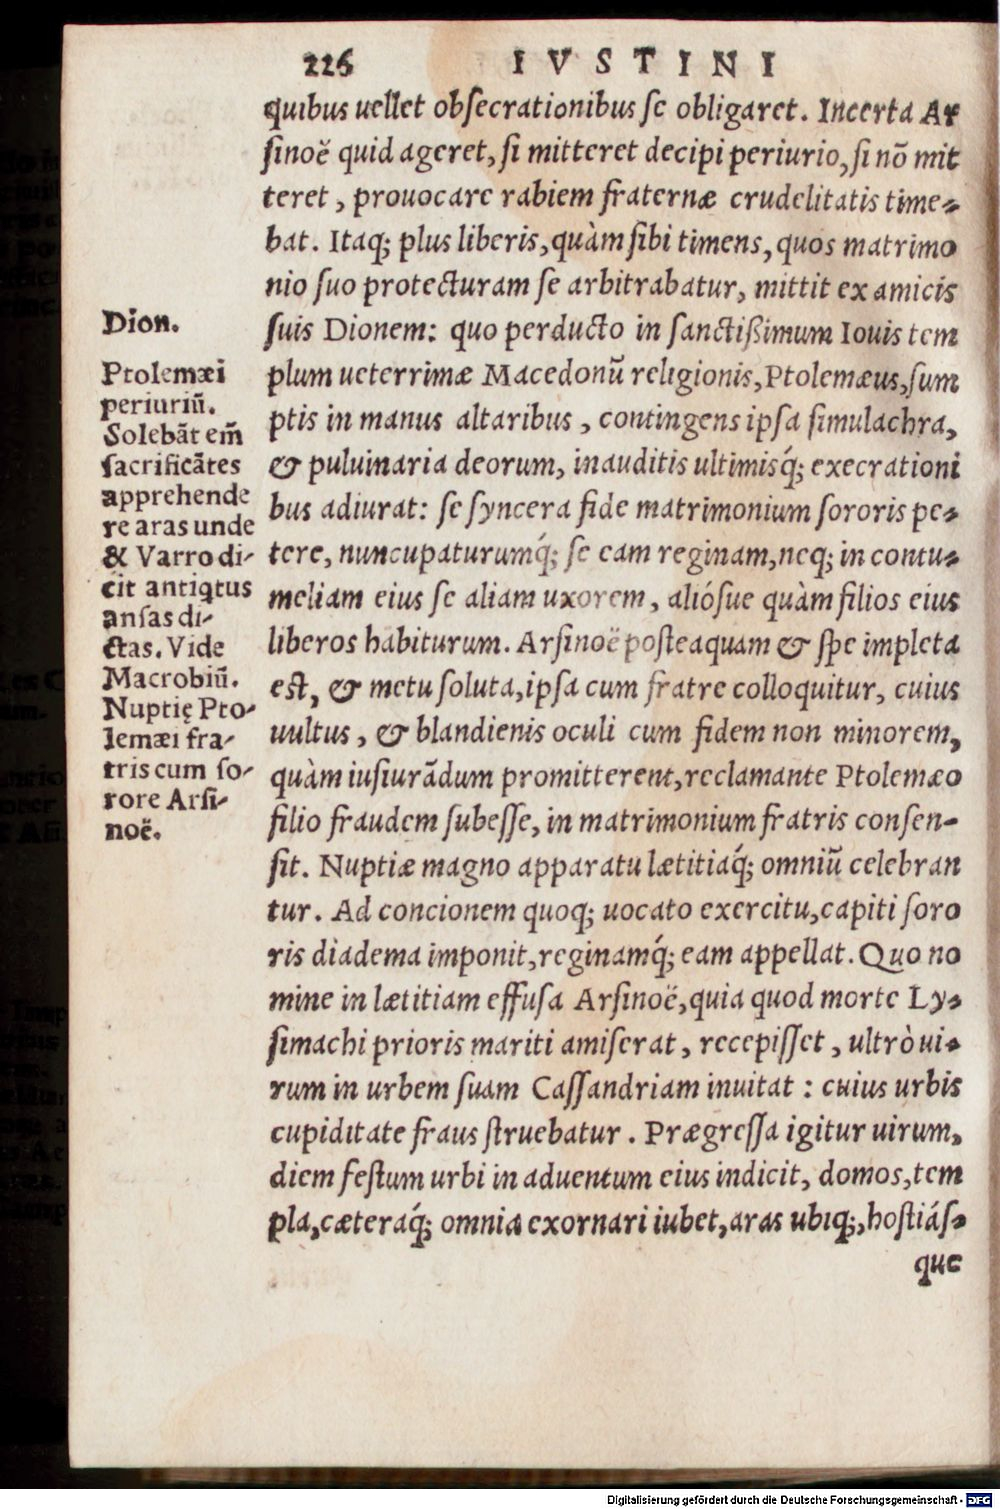 226 IVSTINI
quibus uellet obsecrationibus se obligaret. Incerta Ar
sinoë quid ageret, si mitteret decipi periurio, si nõ mit
teret, prouocare rabiem fraternæ crudelitatis time-
bat. Itaq; plus liberis, quàm sibi timens, quos matrimo
nio suo protecturam se arbitrabatur, mittit ex amicis
suis Dionem: quo perducto in sanctißimum Iouis tem
plum ueterrimæ Macedonũ religionis, Ptolemæus, sum
ptis in manus altaribus, contingens ipsa simulachra,
& puluinaria deorum, inauditis ultimisq́; execrationi
bus adiurat: se syncera fide matrimonium sororis pe-
tere, nuncupaturumq́; se eam reginam, neq; in contu-
meliam eius se aliam uxorem, aliósue quàm filios eius
liberos habiturum. Arsinoë posteaquam & spe impleta
est, & metu soluta, ipsa cum fratre colloquitur, cuius
uultus, & blandienis oculi cum fidem non minorem,
quàm iusiurãdum promitterent, reclamante Ptolemæo
filio fraudem subesse, in matrimonium fratris consen-
sit. Nuptiæ magno apparatu lætitiaq́; omniũ celebran
tur. Ad concionem quoq; uocato exercitu, capiti soro
ris diadema imponit, reginamq́; eam appellat. Quo no
mine in lætitiam effusa Arsinoë, quia quod morte Ly-
simachi prioris mariti amiserat, recepisset, ultrò ui-
rum in urbem suam Cassandriam inuitat: cuius urbis
cupiditate fraus struebatur. Prægressa igitur uirum,
diem festum urbi in aduentum eius indicit, domos, tem
pla, cæteraq́; omnia exornari iubet, aras ubiq;, hostiás-
que
Dion.
Ptolemæi
periuriũ.
Solebãt em̃
sacrificãtes
apprehende
re aras unde
& Varro di-
cit antiqtus
ansas di-
ctas. Vide
Macrobiũ.
Nuptię Pto-
lemæi fra-
tris cum so-
rore Arsi-
noë.
Digitalisierung gefördert durch die Deutsche Forschungsgemeinschaft - DFG